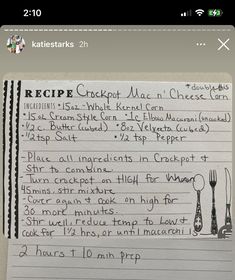 2:10
katiestarks 2h
*double this
RECIPE Crockpot Mac n' Cheese Corn
INGREDIENTS • 15oz - Whole Kernel Corn
• 15 oz Cream Style Corn • 1c Elbow Macaroni (uncooked)
• 1/2 c. Butter (cubed) • 8oz Velveeta (cubed)
• 1/2 tsp Salt • 1/2 tsp Pepper
- Place all ingredients in Crockpot &
Stir to combine.
- Turn crockpot on HIGH for
45 mins. stir mixture
- Cover again & cook on high for
30 more minutes.
- Stir well, reduce temp to Low &
cook for 1 1/2 hrs, or until macaroni is
2 hours + 10 min prep